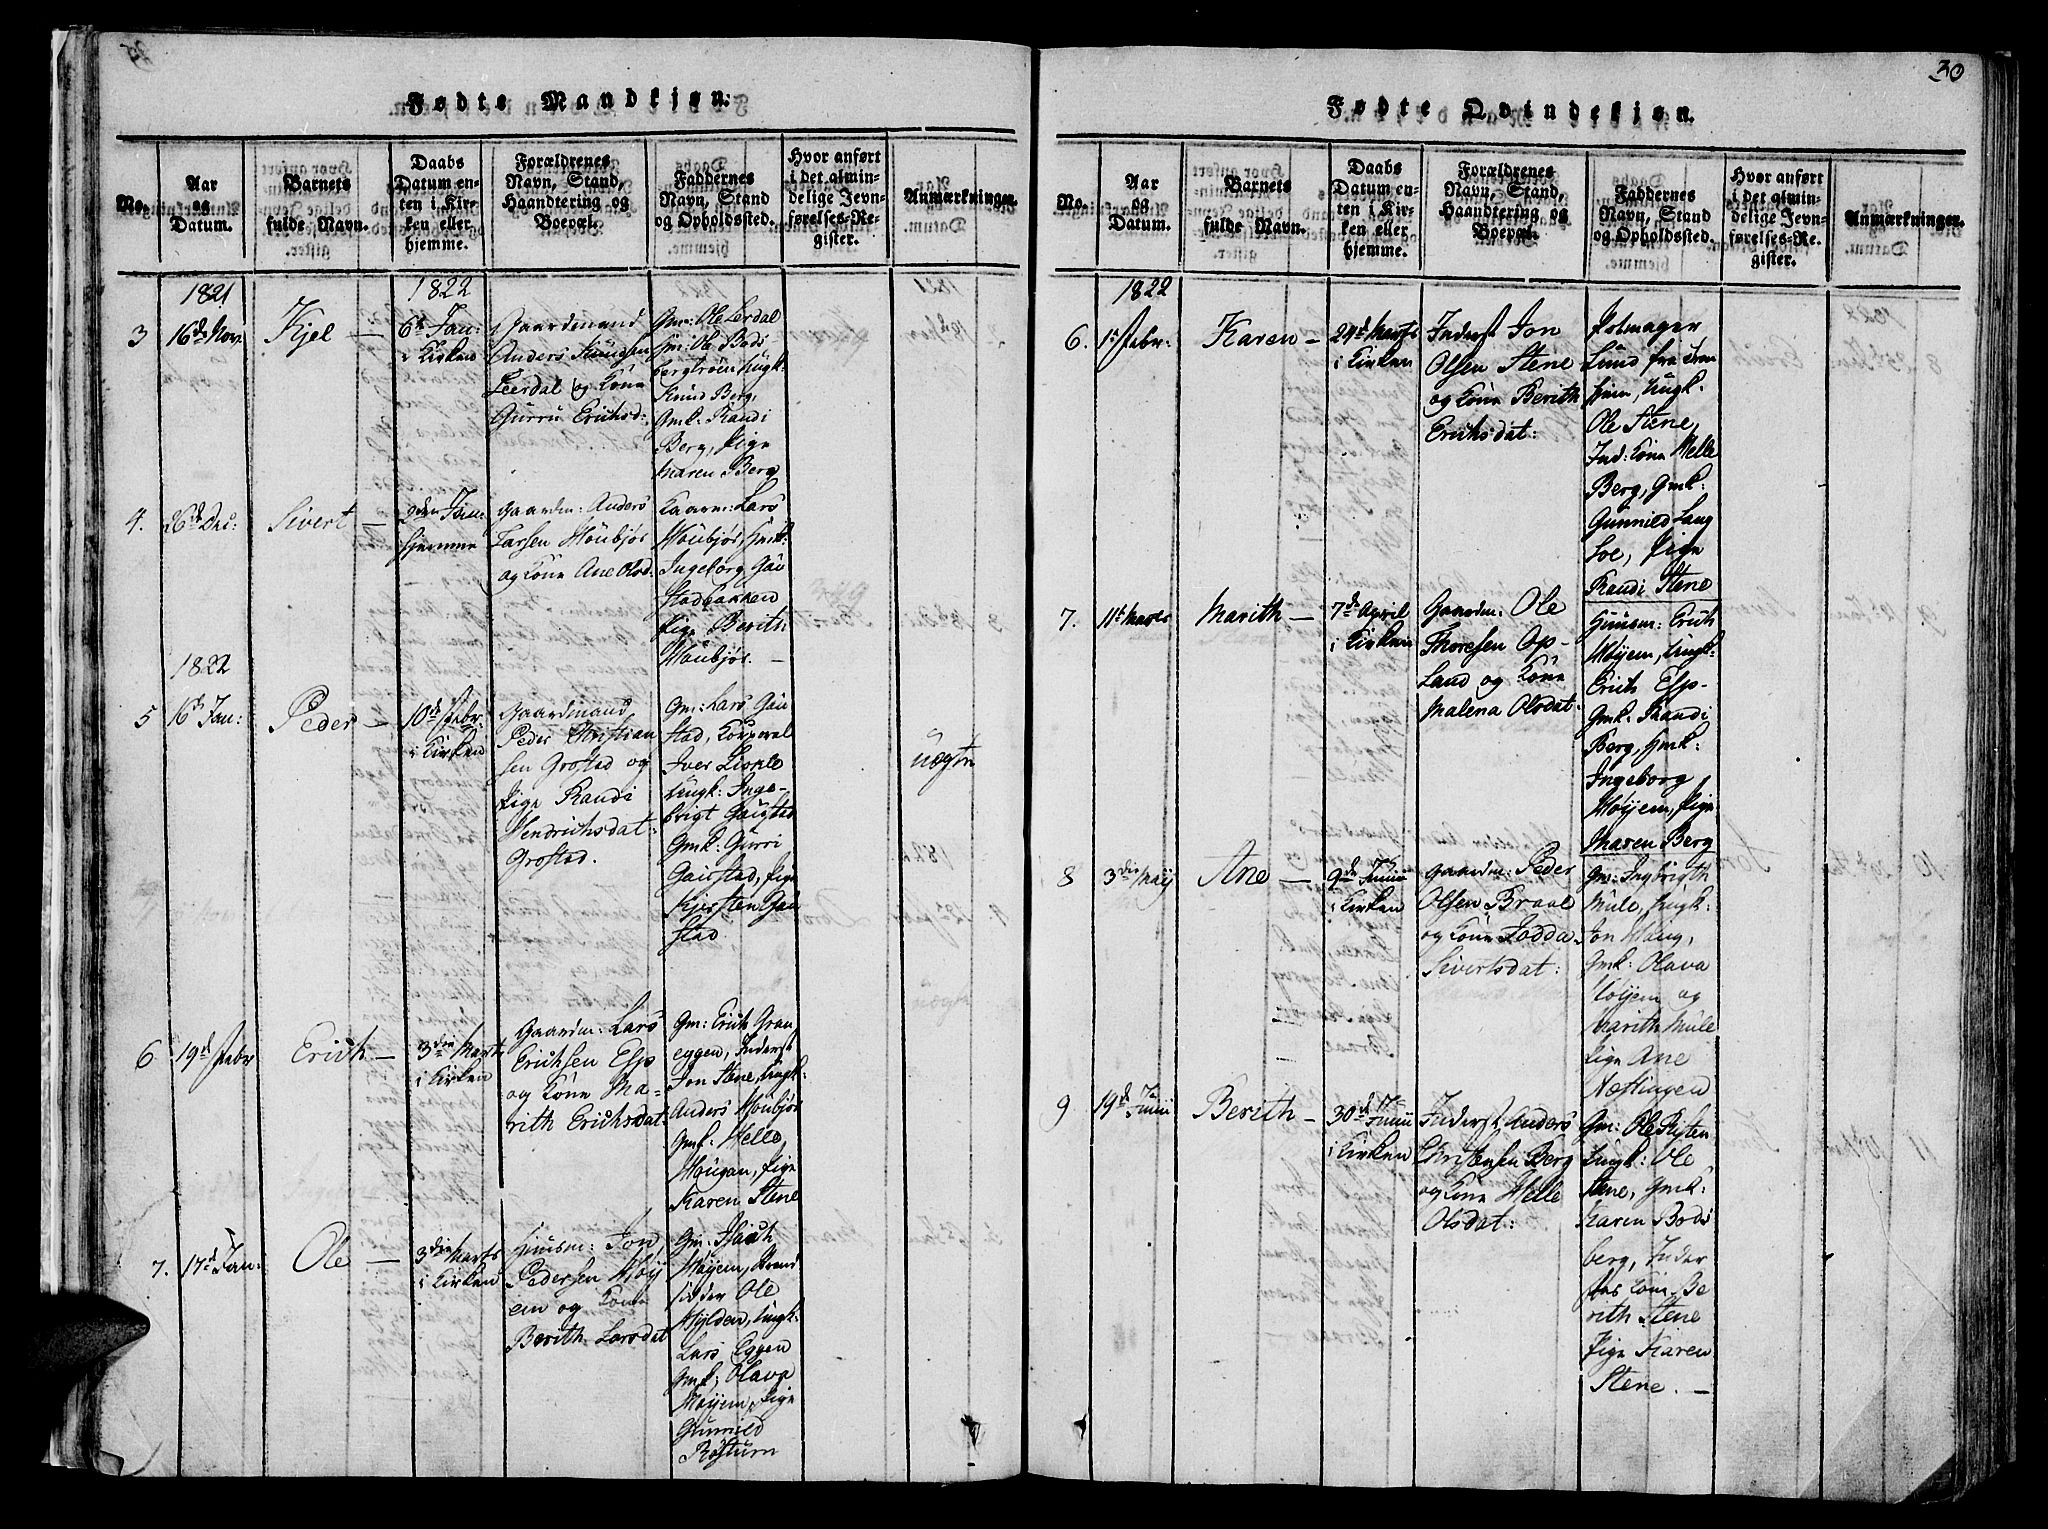 Fødte Mandkjøn:
No.
Aar
og
Datum.
Barnets
fulde Navn.
Daabs
Datum en-
ten i Kir-
ken eller
hjemme.
Forældrenes
Navn, Stand,
Haandtering og
Boepæl.
Faddernes
Navn, Stand
og Opholdssted.
Hvor anført
i det almin-
delige Jevn-
førelses-Re-
gister.
Anmærkninger.
1821
1822
3
16de Nov:
Kjel —
6te Jan:
i Kirken
Gaardmand
Anders Knudsen
Leerdal og Kone
Gurru Erichsd:
Gm: Ole Lerdal
Gm: Ole Bodi-
bergtrøen, Ungk:
Knud Berg,
Gmk: Randi
Berg, Pige
Maren Berg
4.
26de Dec:
Sivert —
2den Jan:
hjemme
Gaardm: Anders
Larsen Moubjør
og Kone Ane Olsd:
Kaarm: Lars
Moubjør,
Ingeborg Gau
stadbakken
Pige Berith
Moubjør. —
1822
5
16de Jan:
Peder —
10de Febr:
i Kirken
Gaardmand
Peder Christian
sen Grostad og
Pige Randi
Hendrichsdat:
Grostad.
Gm: Lars Gau
stad, Korporal
Iver Liekle
Ungk: Inge-
brigt Gaustad
Gmk: Gurri
Gaustad, Pige
Kjersten Gau
stad.
uægte
6
19de Febr
Erich —
3die Marts
i Kirken
Gaardm: Lars
Erichsen Esp
og Kone Ma-
rith Erichsdat:
Gm: Erich Gran
eggen, Inderst
Jon Stene, Ungk:
Anders Moubjør
Gmk: Helle
Hougan, Pige
Karen Stene
7.
17de Jan:
Ole —
3die Marts
i Kirken
Huusm: Jon
Pedersen Møy
em og Kone
Berith Larsdat
Gm:
Møyem, Strand
sidder Ole
Hylden, Ungk:
Lars Eggen
Gmk: Olava
Møyem, Pige
Gunnild
Røstum
30
Fødte Qvindekjøn.
No.
Aar
og
Datum.
Barnets
fulde Navn.
Daabs
Datum en-
ten i Kir-
ken eller
hjemme.
Forældrenes
Navn, Stand,
Haandtering og
Boepæl.
Faddernes
Navn, Stand
og Opholdssted.
Hvor anført
i det almin-
delige Jevn-
førelses-Re-
gister.
Anmærkninger.
1822
6.
1ste Febr:
Karen —
24de Marts
i Kirken
Inderst Jon
Olsen Stene
og Kone Berith
Erichsdat:
Potmager
Lund fra Tron
hjem, Ungk:
Ole Stene,
Ind: Kone Helle
Berg, Gmk:
Gunnild Lang
loe, Pige
Randi Stene
7.
11te Marts
Marith —
7de April
i Kirken
Gaardm: Ole
Thoresen Op-
land og Kone
Malena Olsdat:
Huusm: Erich
Møyem, Ungk:
Erich Esp
Gmk: Randi
Berg, Gmk:
Ingeborg
Møyem, Pige
Maren Berg
8
3die Maij
Ane —
9de Junii
i Kirken
Gaardm: Peder
Olsen Braal
og Kone Jodda
Sivertsdat:
Gm: Ingbrigth
Mule, Ungk:
Jon Haug,
Gmk: Olava
Møyem og
Marith Mule
Pige Ane
Næstingen
9
19de Junii
Berith —
30de Junii
i Kirken
Inderst Anders
Christensen Berg
og Kone Helle
Olsdat:
Gm: Ole Risten
Ungk: Ole
Stene, Gmk:
Karen Bodi
berg, Inder
stes Kone Be
rith Stene
Pige Karen
Stene. —